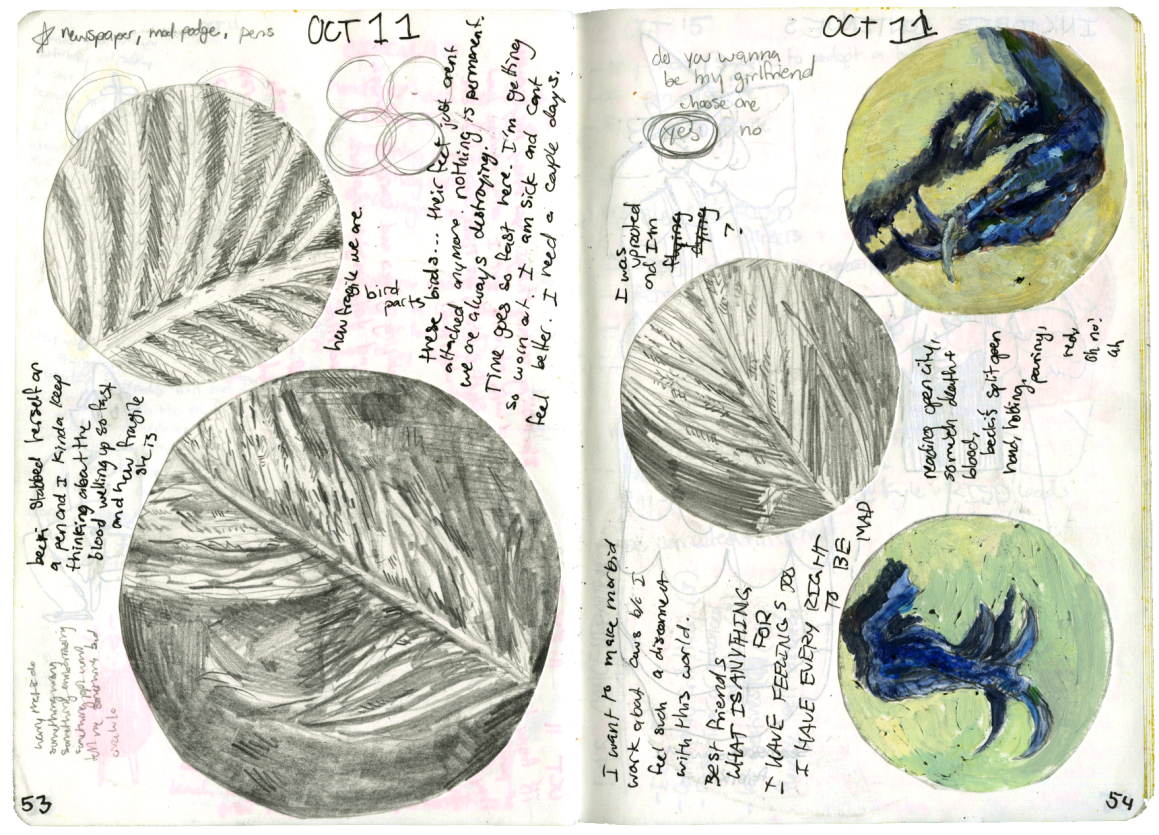 ☆ newspaper, mod podge, pens
OCT 11
how fragile we are.
these birds... their feet just arent
attached anymore. nothing is permanent.
we are always destroying.
Time goes so fast here. I'm getting
so worn out. I am sick and cant
feel better. I need a couple days.
becki stabbed herself on
a pen and I kinda keep
thinking about the
blood welling up so fast
and how fragile
she is
worry that i do
something wrong
something embarrassing
something
tell me something bad
53
OCT 11
do you wanna
be my girlfriend
choose one
yes no
I was
uprooted
and I'm
flying
flying
?
reading open city,
so much death +
blood,
becki's split open
hand,
pouring,
red,
oh no!
ah
I want to make morbid
work about caws b/c I
feel such a disconnect
with this world.
BEST friends
WHAT IS ANYTHING
FOR
I HAVE FEELINGS TOO
I HAVE EVERY RIGHT
TO
BE
MAD
54